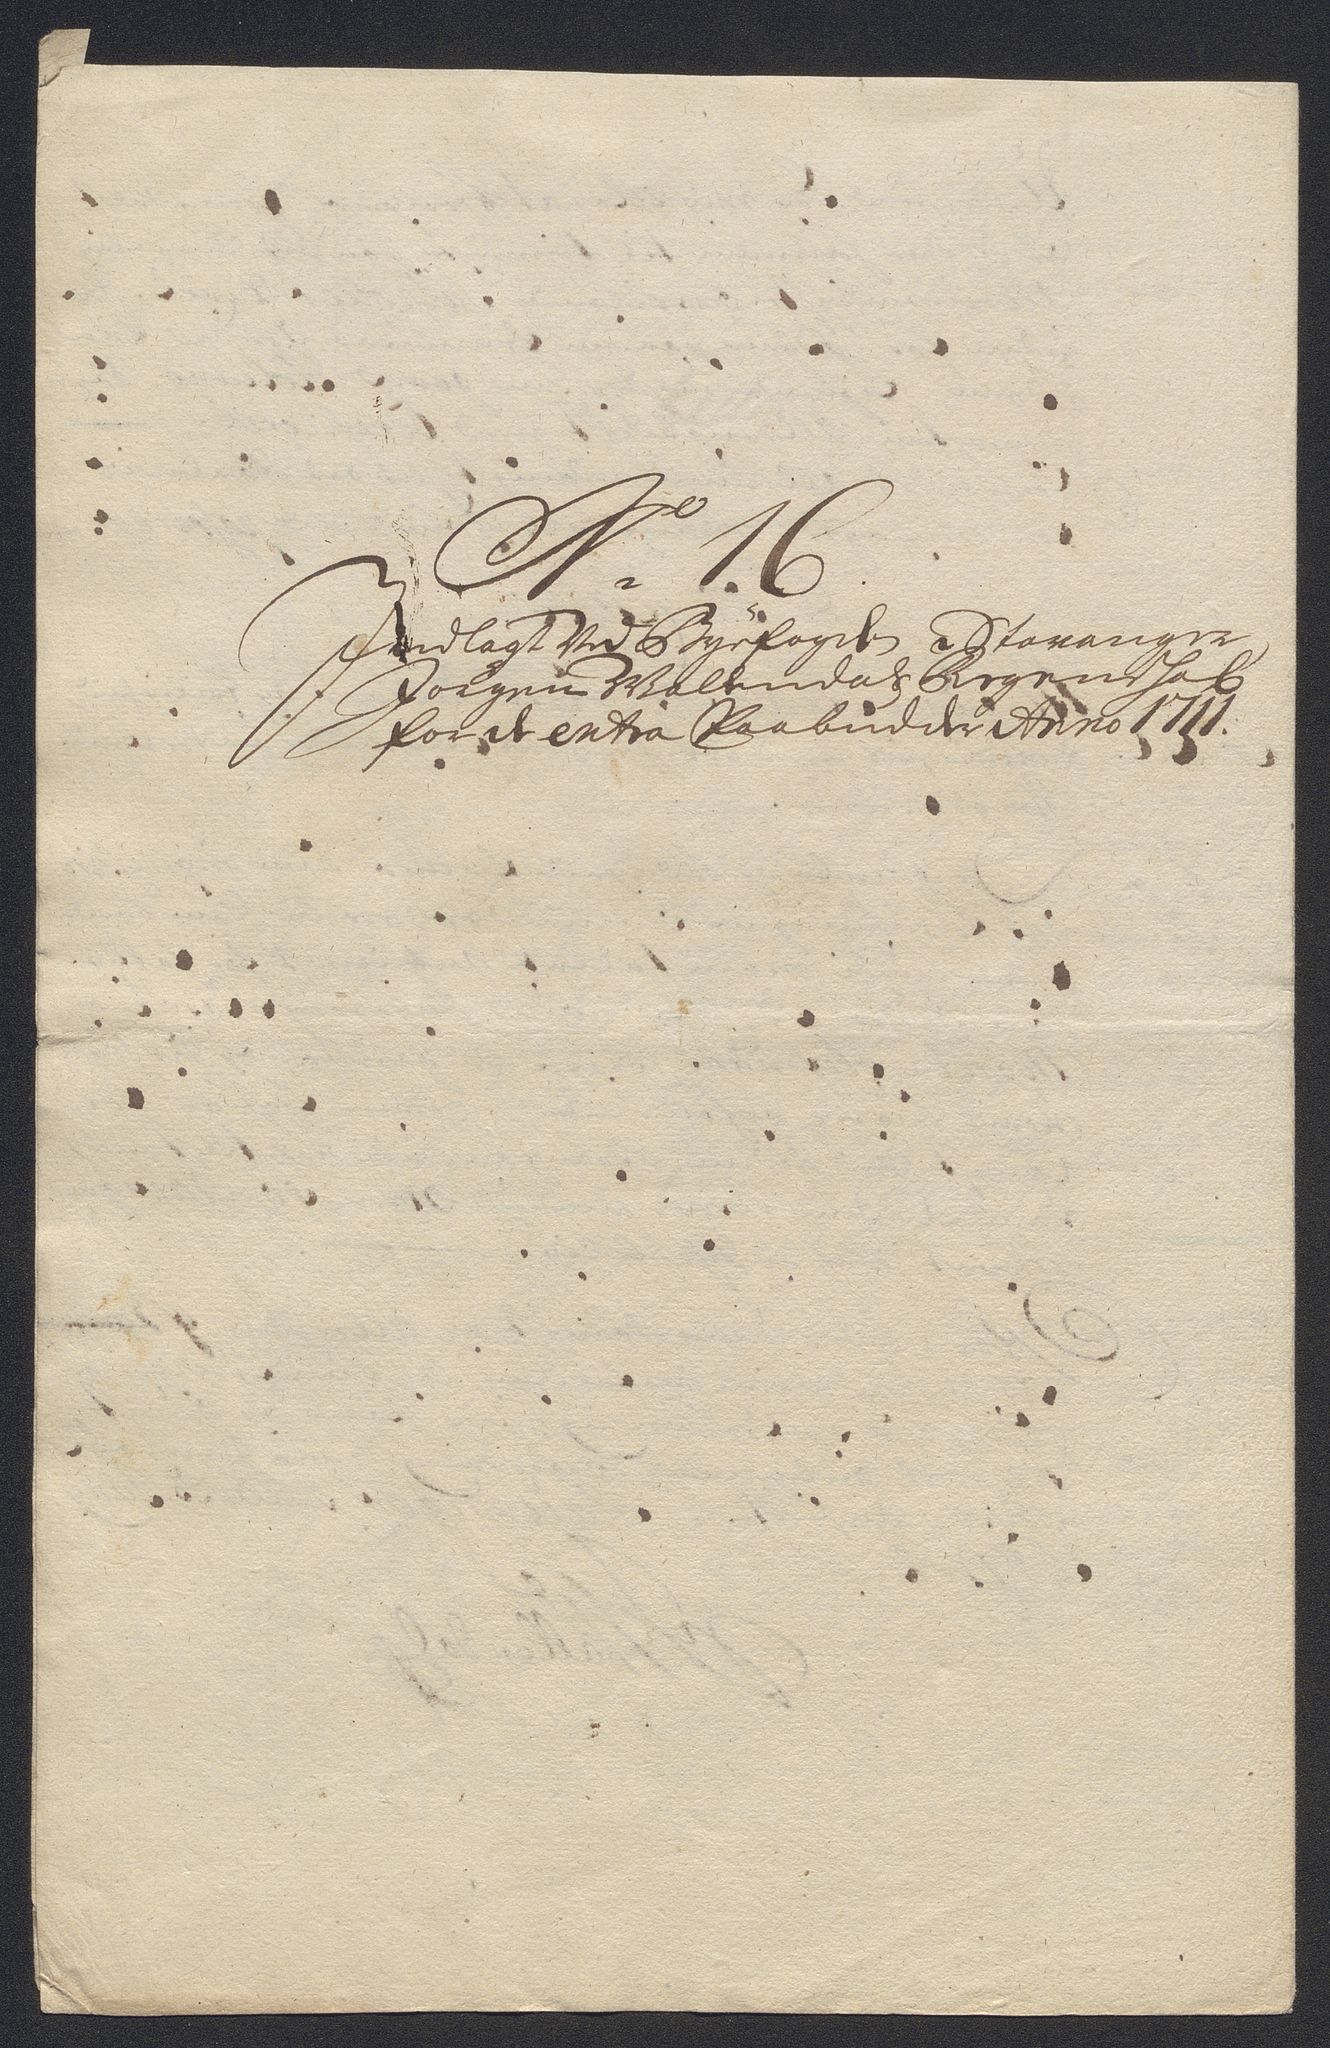 No 16
Indlagt Ved Byefogden i Stavanger
Jørgen Wallendals Regenskab
for de extra Paabudder Anno 1711.